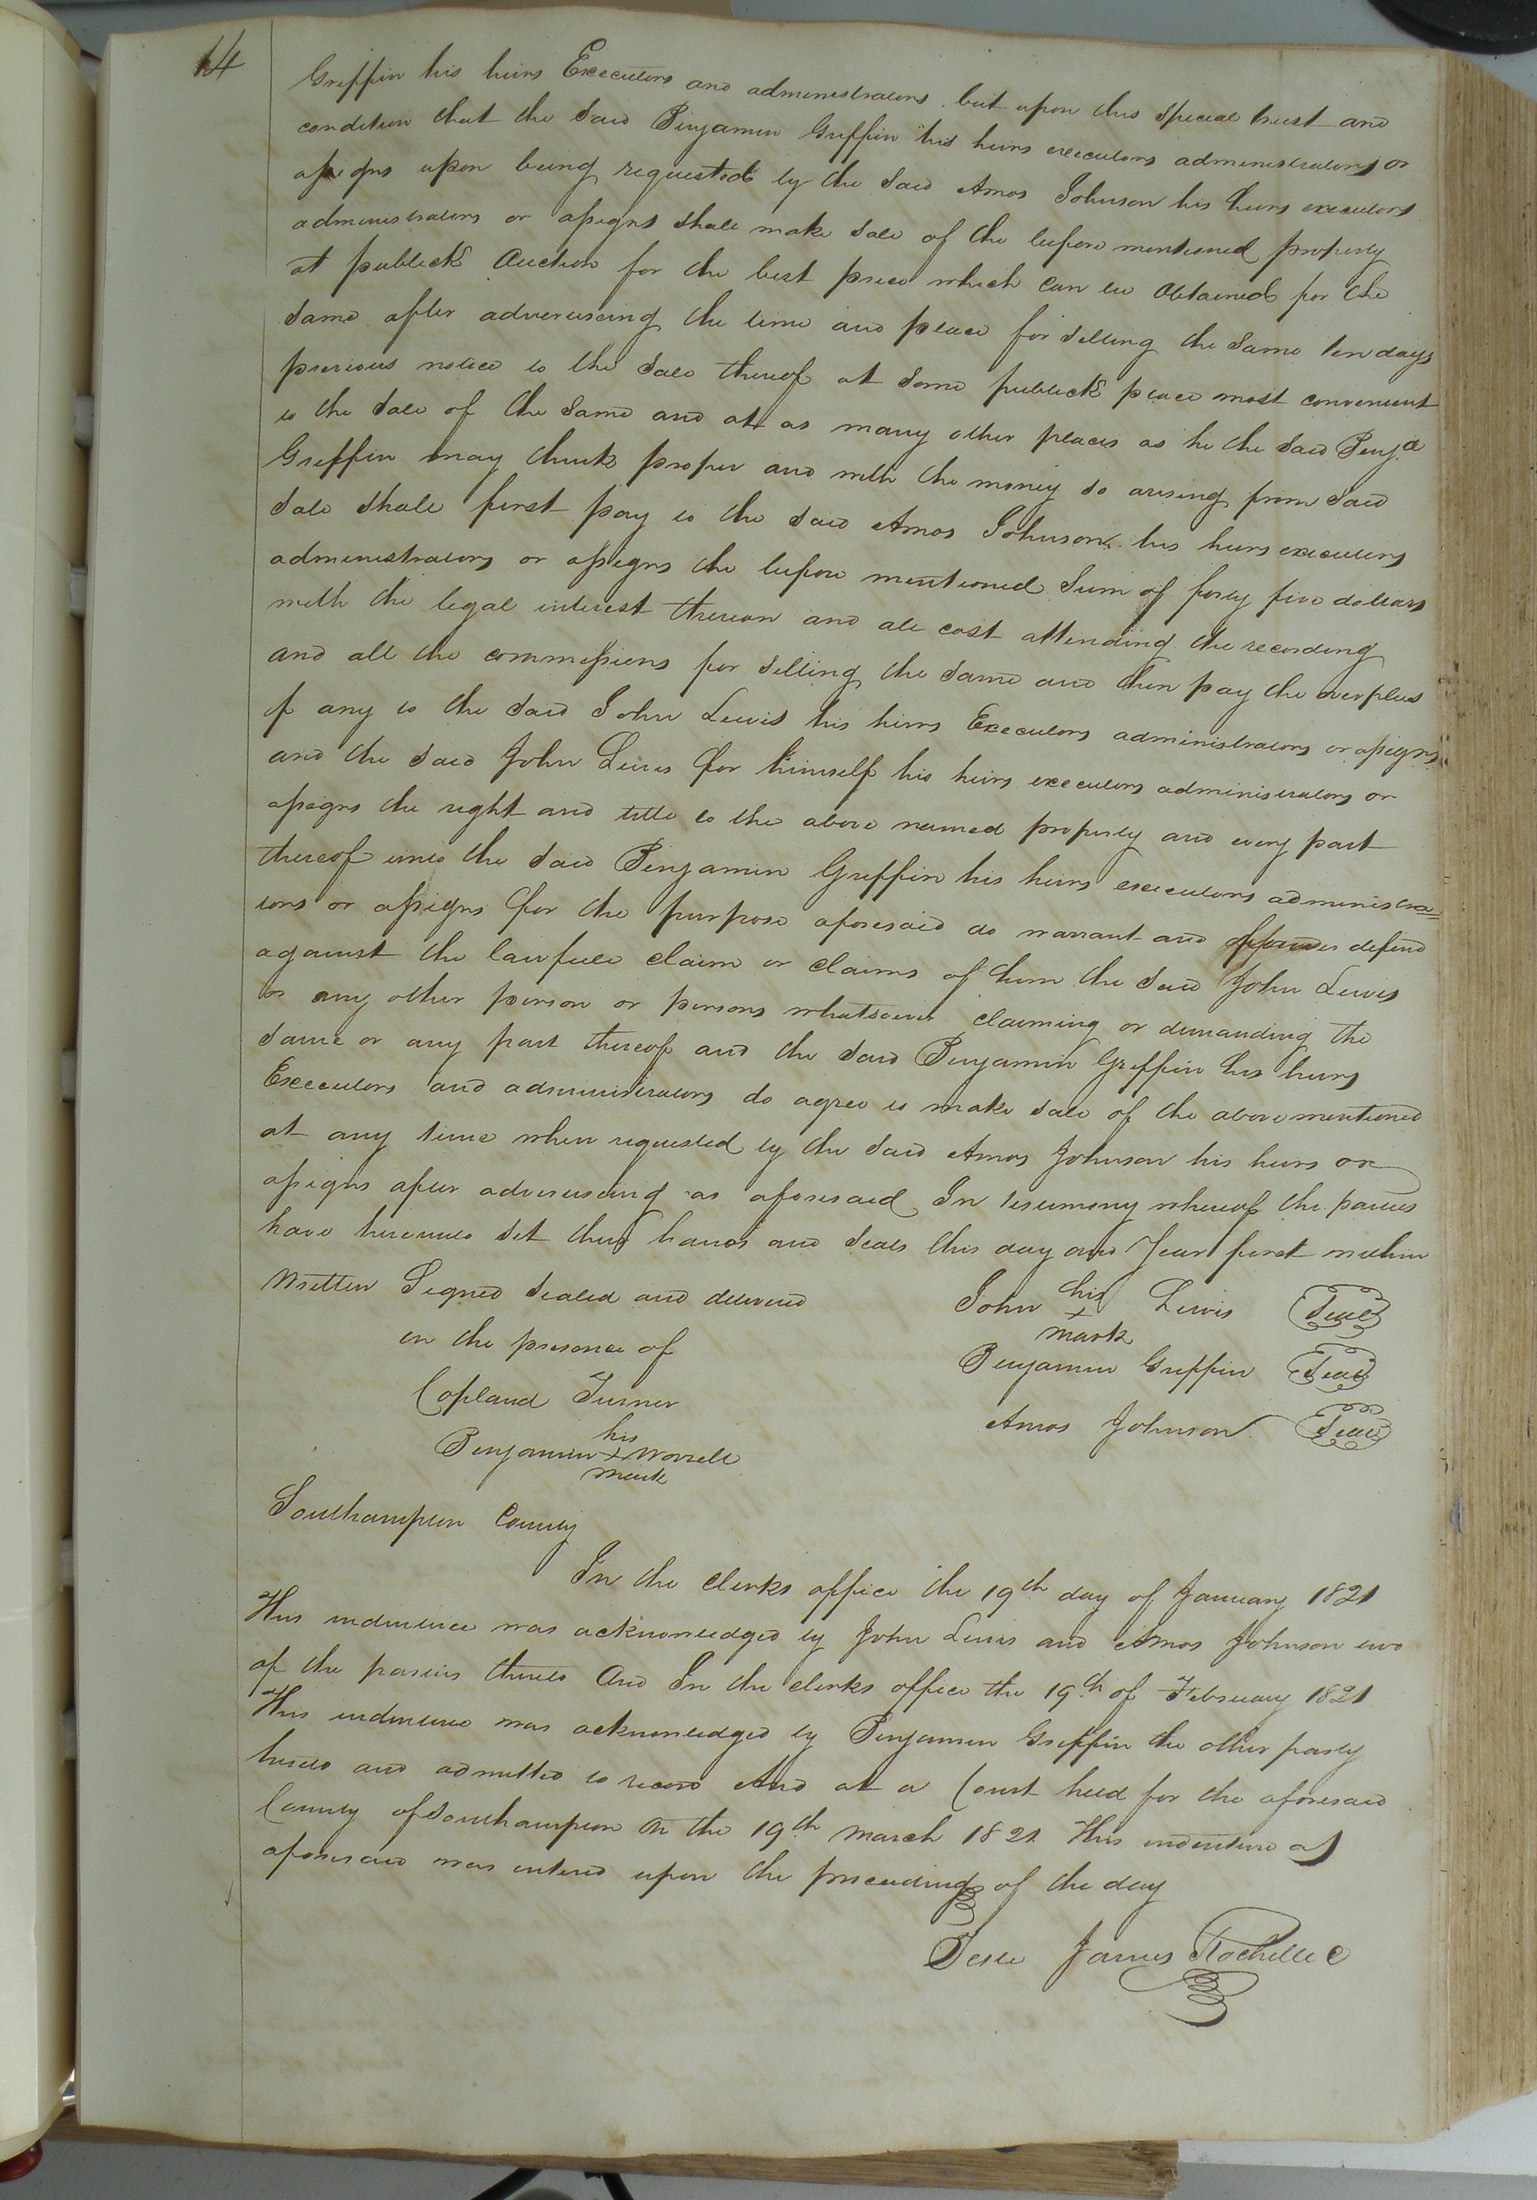 14
Griffin his heirs Executors and administrators but upon this special trust and
condition that the said Benjamin Griffin his heirs executors administrators or
assigns upon being requested by the said Amos Johnson his heirs executors
administrators or assigns shall make sale of the before mentioned property
at publick Auction for the best price which can be obtained for the
same after advertiseing the time and place for selling the same ten days
previous notice to the sale thereof at some publick place most convenient
to the sale of the same and at as many other places as he the said Benja
Griffin may think proper and with the money so arising from said
sale shall first pay to the said Amos Johnson his heirs executors
administrators or assigns the before mentioned sum of forty five dollars
with the legal interest thereon and all cost attending the recording
and all the commissions for selling the same and then pay the overplus
if any to the said John Lewis his heirs Executors administrators or assigns
and the said John Lewis for himself his heirs executors administrators or
assigns the right and title to the above named property and every part
thereof unto the said Benjamin Griffin his heirs executors administra=
tors or assigns for the purpose aforesaid do warrant and defend
against the lawfull claim or claims of him the said John Lewis
or any other person or persons whatsoever claiming or demanding the
same or any part thereof and the said Benjamin Griffin his heirs
Executors and administrators do agree to make sale of the above mentioned
at any time when requested by the said Amos Johnson his heirs or
assigns after advertiseing as aforesaid In testimony whereof the parties
have hereunto set their hands and seals this day and Year first within
Written Signed Sealed and delivered
in the presence of
Copland Turner
his
Benjamin + Worrell
mark
his
John + Lewis Seal
mark
Benjamin Griffin Seal
Amos Johnson Seal
Southampton County
In the clerks office the 19th day of January 1821
This indenture was acknowledged by John Lewis and Amos Johnson two
of the parties thereto And In the clerks office the 19th of February 1821
This indenture was acknowledged by Benjamin Griffin the other party
hereto and admitted to record And at a Court held for the aforesaid
County of Southampton on the 19th march 1821 This indenture as
aforesaid was entered upon the proceedings of the day
Teste James Rochelle C